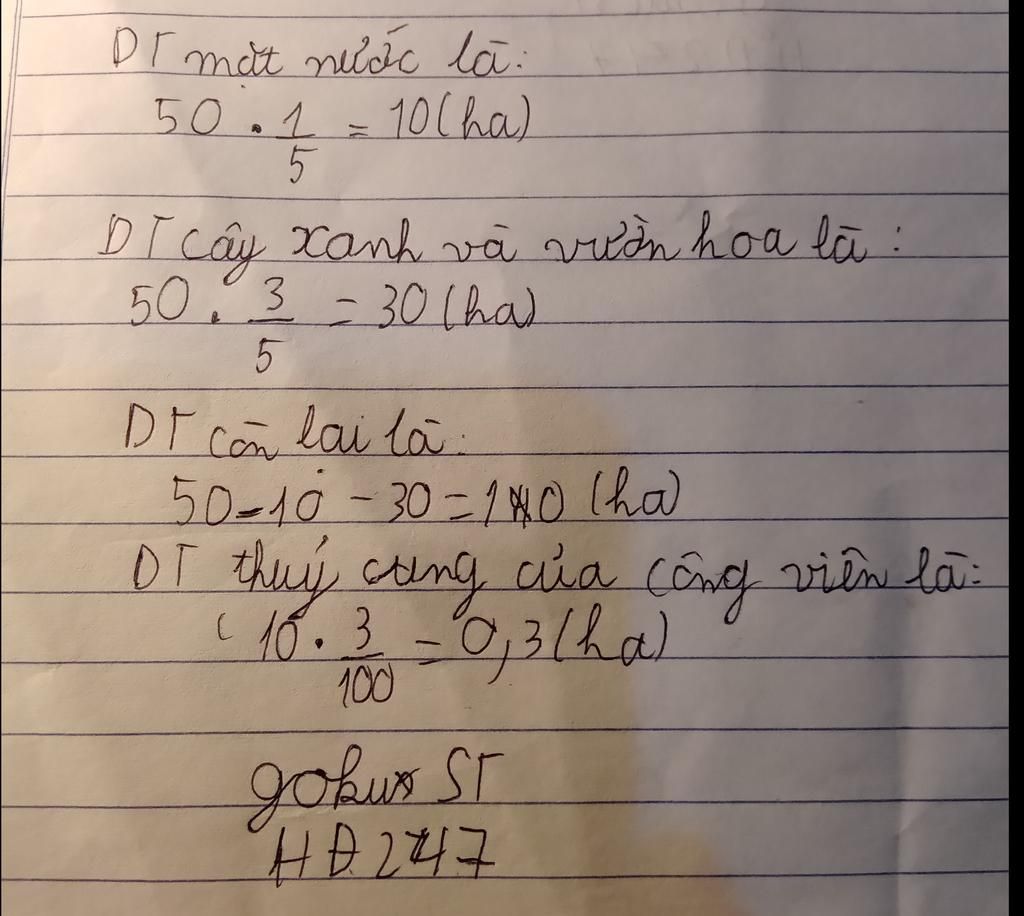 DT mặt nước là:
50 . 1/5 = 10 (ha)
DT cây xanh và vườn hoa là:
50 . 3/5 = 30 (ha)
DT còn lại là:
50 - 10 - 30 = 10 (ha)
DT thuỷ cung của công viên là:
10 . 3/100 = 0,3 (ha)
ST
HĐ 247